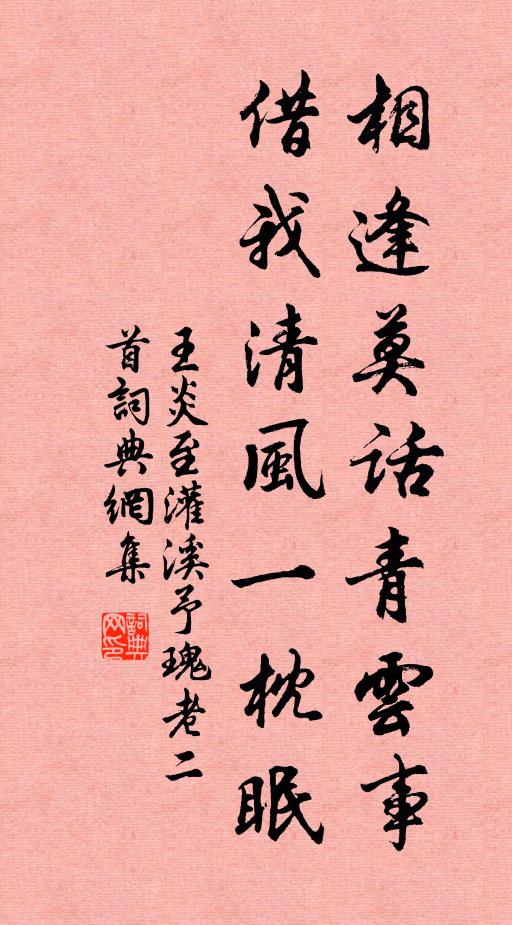 相逢莫話青雲事
借我清風一枕眠
王炎至灌溪予瑰老二
首詞典網集
詞典
网印